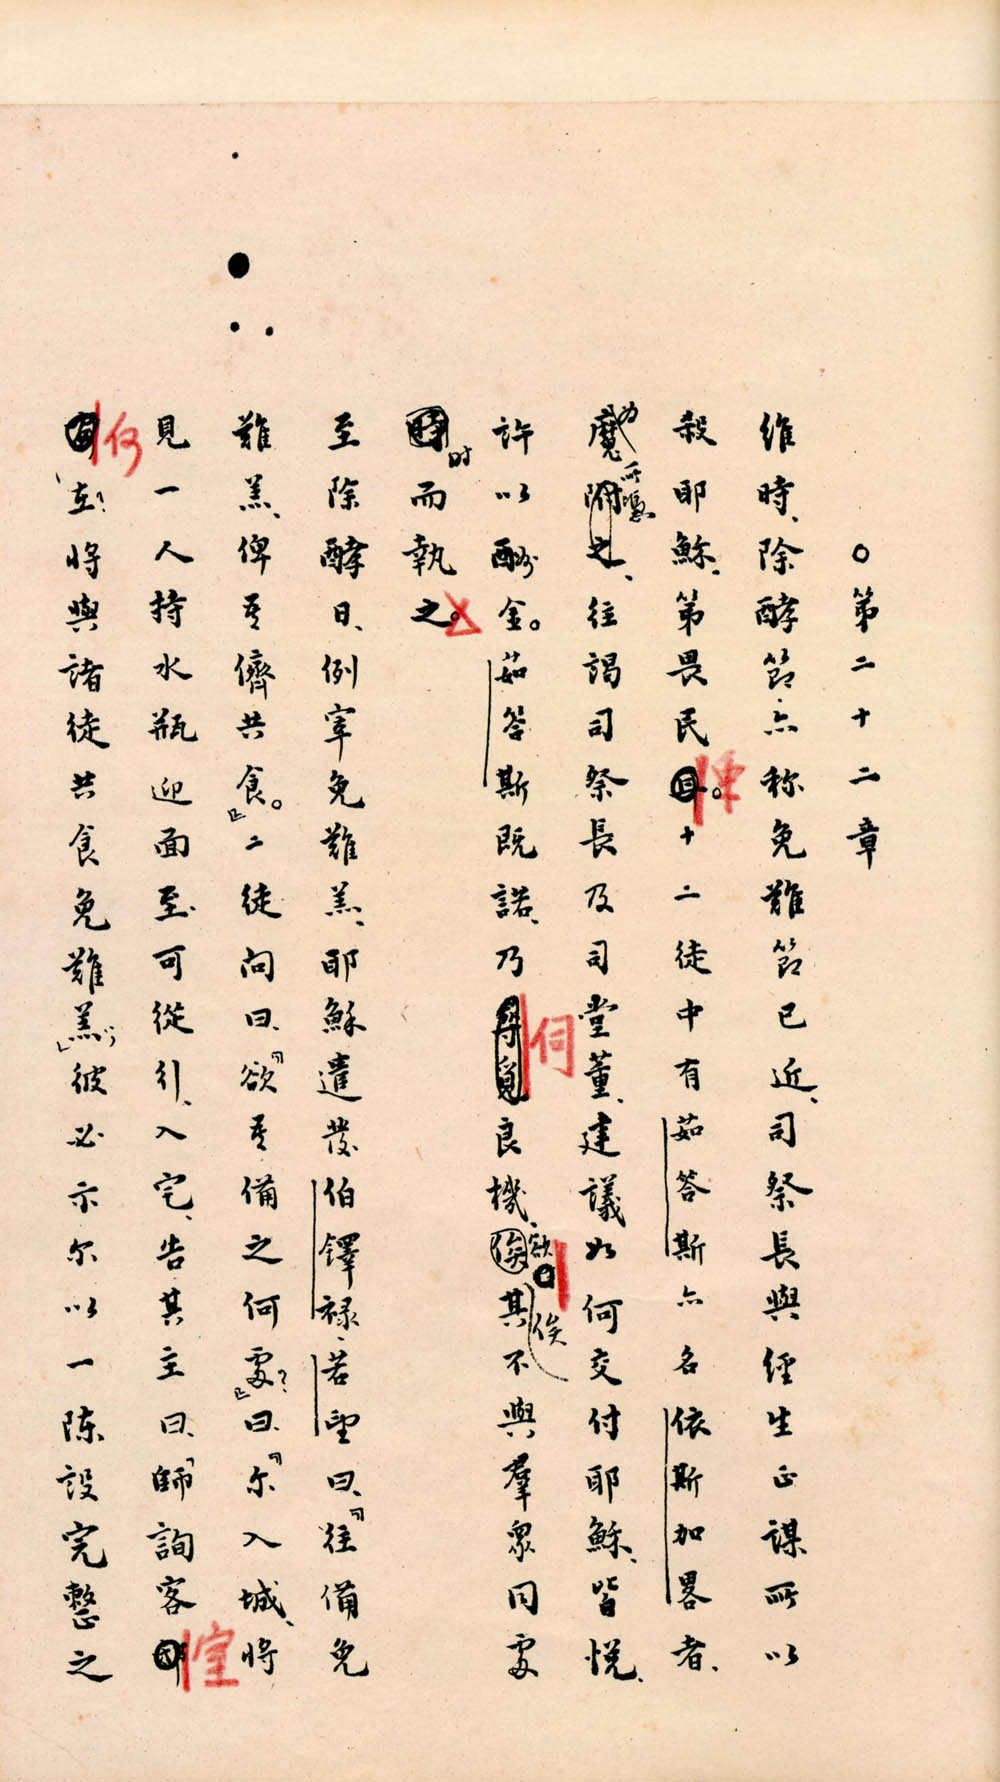 ○第二十二章
維時、除酵節、亦称免難節已近、司祭長與經生正謀所以
殺耶穌、第畏民衆。十二徒中有茹答斯亦名依斯加畧者、
為魔所憑、往謁司祭長及司堂董、建議如何交付耶穌、皆悅、
許以酬金。茹答斯既諾、乃伺良機、欲俟其不與羣眾同處
时而執之。
至除酵日、例宰免難羔、耶穌遣發伯鐸祿、若望曰、「往備免
難羔、俾吾儕共食。」二徒问曰、「欲吾備之何處？」曰、「尔入城、将
見一人持水瓶迎面至、可從引、入宅、告其主曰、『師詢客室
何在？将與諸徒共食免難羔』、彼必示尔以一陳設完整之